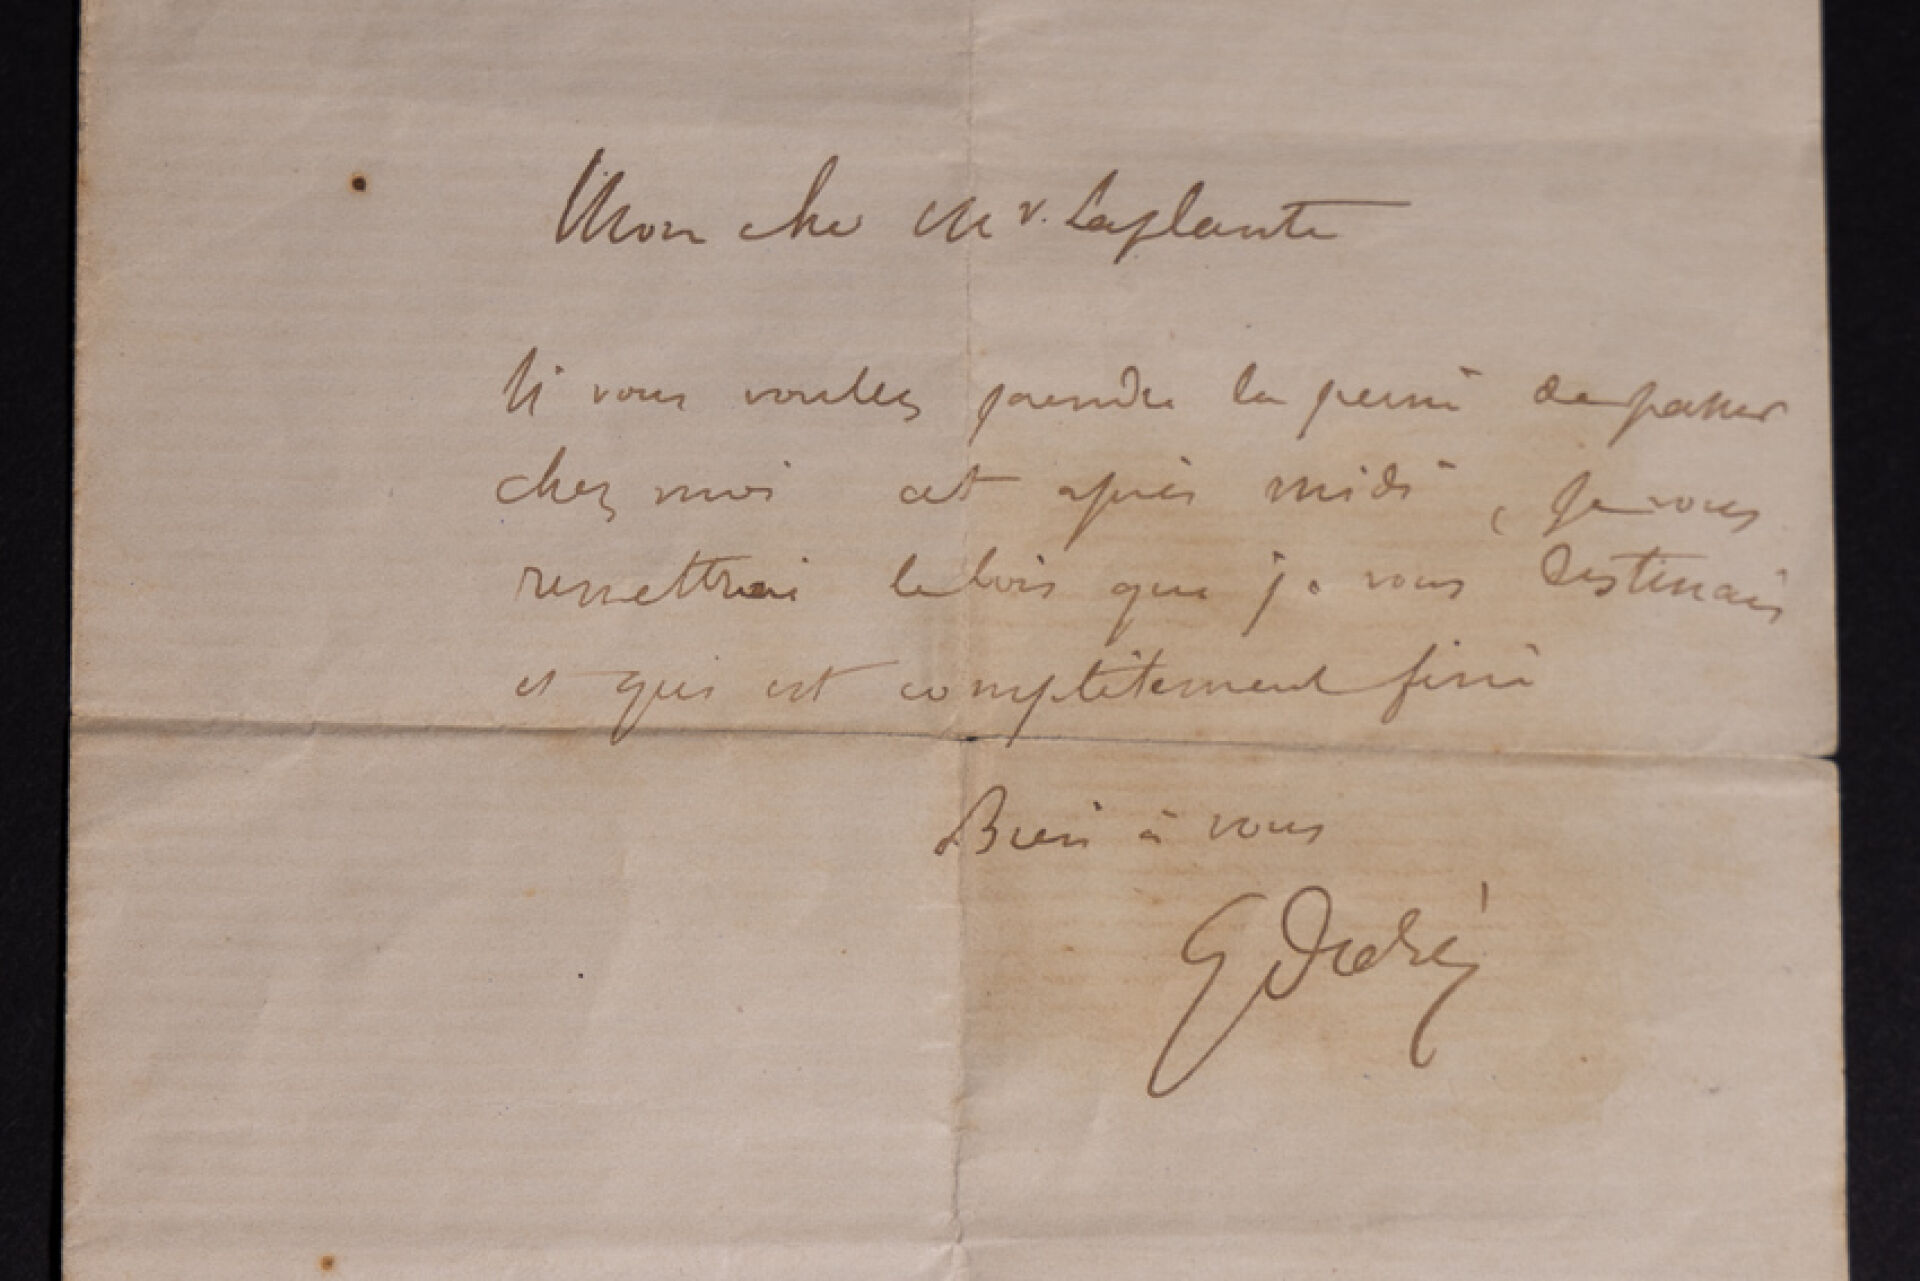 Mon cher Mr. Laplante
Si vous voulez prendre la peine de passer
chez moi cet après midi, je vous
remettrai le bois que je vous destinais
et qui est complètement fini
Bien à vous
G Doré